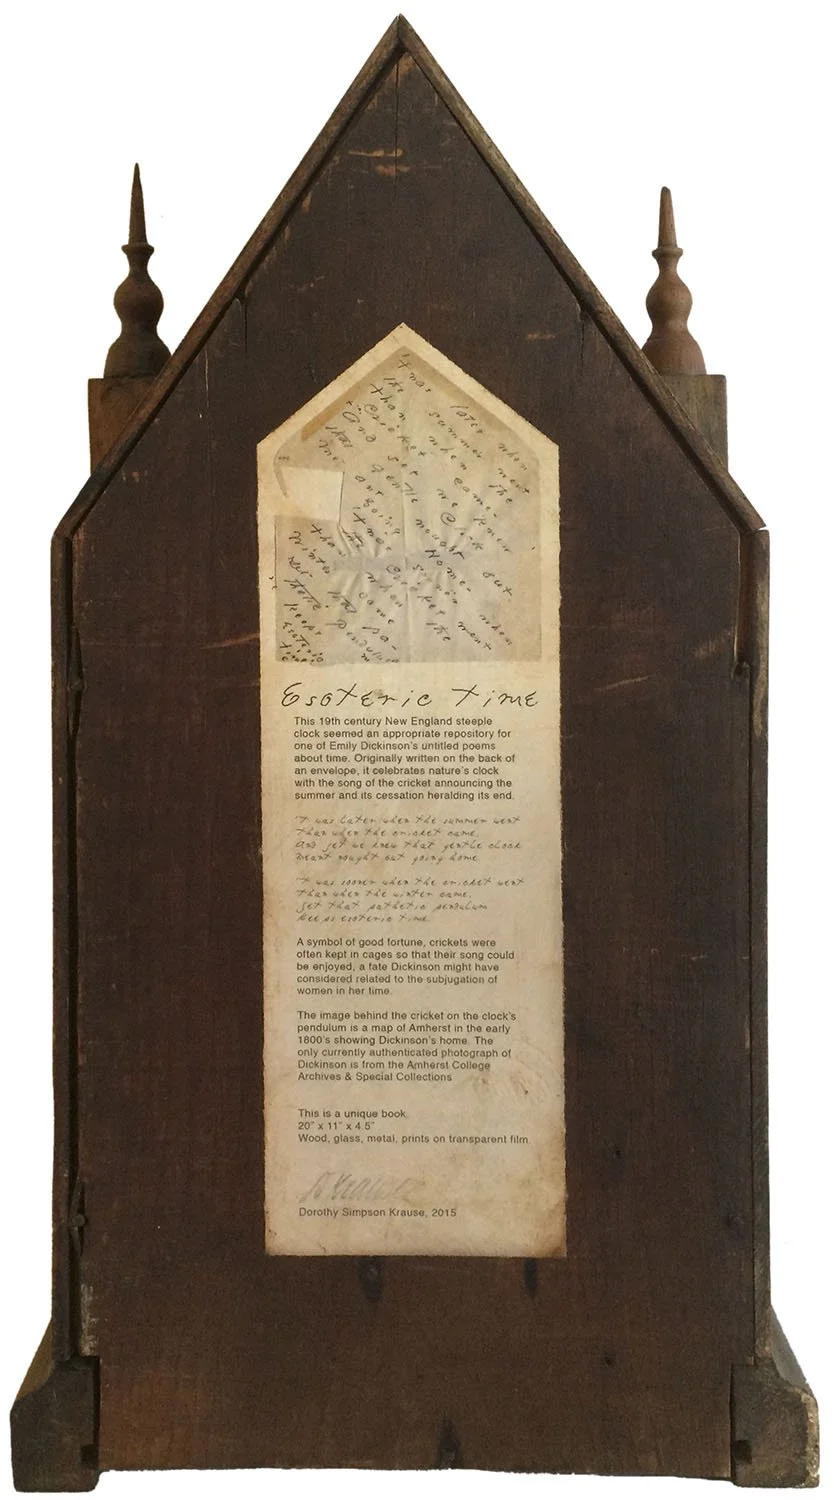 'Twas later when
the summer went
than when the
Cricket came -
And yet we knew
that gentle Clock
meant nought but
Going Home -
'Twas sooner when
the Cricket went
than when the
Winter came
Yet that pa-
thetic Pendulum
keeps
Esoteric
Time
Esoteric Time
This 19th century New England steeple
clock seemed an appropriate repository for
one of Emily Dickinson's untitled poems
about time. Originally written on the back of
an envelope, it celebrates nature's clock
with the song of the cricket announcing the
summer and its cessation heralding its end.
'T was later when the summer went
Than when the cricket came,
And yet we knew that gentle clock
Meant nought but going home
'T was sooner when the cricket went
Than when the winter came,
Yet that pathetic pendulum
Keeps esoteric time.
A symbol of good fortune, crickets were
often kept in cages so that their song could
be enjoyed, a fate Dickinson might have
considered related to the subjugation of
women in her time.
The image behind the cricket on the clock's
pendulum is a map of Amherst in the early
1800's showing Dickinson's home. The
only currently authenticated photograph of
Dickinson is from the Amherst College
Archives & Special Collections
This is a unique book
20" x 11" x 4.5"
Wood, glass, metal, prints on transparent film.
D Krause
Dorothy Simpson Krause, 2015